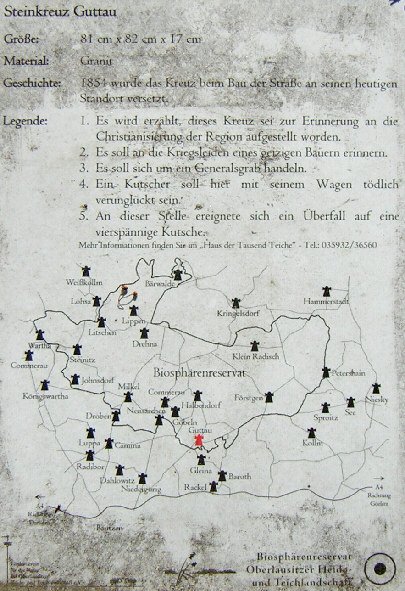 Steinkreuz Guttau
Größe: 81 cm x 82 cm x 17 cm
Material: Granit
Geschichte: 1854 wurde das Kreuz beim Bau der Straße an seinen heutigen
Standort versetzt.
Legende: 1. Es wird erzählt, dieses Kreuz sei zur Erinnerung an die
Christianisierung der Region aufgestellt worden.
2. Es soll an die Kriegsleiden eines geizigen Bauern erinnern.
3. Es soll sich um ein Generalsgrab handeln.
4. Ein Kutscher soll hier mit seinem Wagen tödlich
verunglückt sein.
5. An dieser Stelle ereignete sich ein Überfall auf eine
vierspännige Kutsche.
Mehr Informationen finden Sie im „Haus der Tausend Teiche" - Tel.: 035932/36560
Weißkollm
Bärwalde
Lohsa
Lippen
Kringelsdorf
Hammerstadt
Litschen
Drehna
Wartha
Steinitz
Klein Radisch
Commerau
Biosphärenreservat
Petershain
Königswartha
Johnsdorf
Milkel
Commerau
Halbendorf
Förstgen
Niesky
Neusärchen
See
Sproitz
Droben
Göbeln
Guttau
Luppa
Camina
Kollm
Radibor
Gleina
Dahlowitz
Baruth
Niedergurig
Rackel
A4
Richtung
Görlitz
A4
Richtung
Dresden
Bautzen
Biosphärenreservat
Oberlausitzer Heide-
und Teichlandschaft